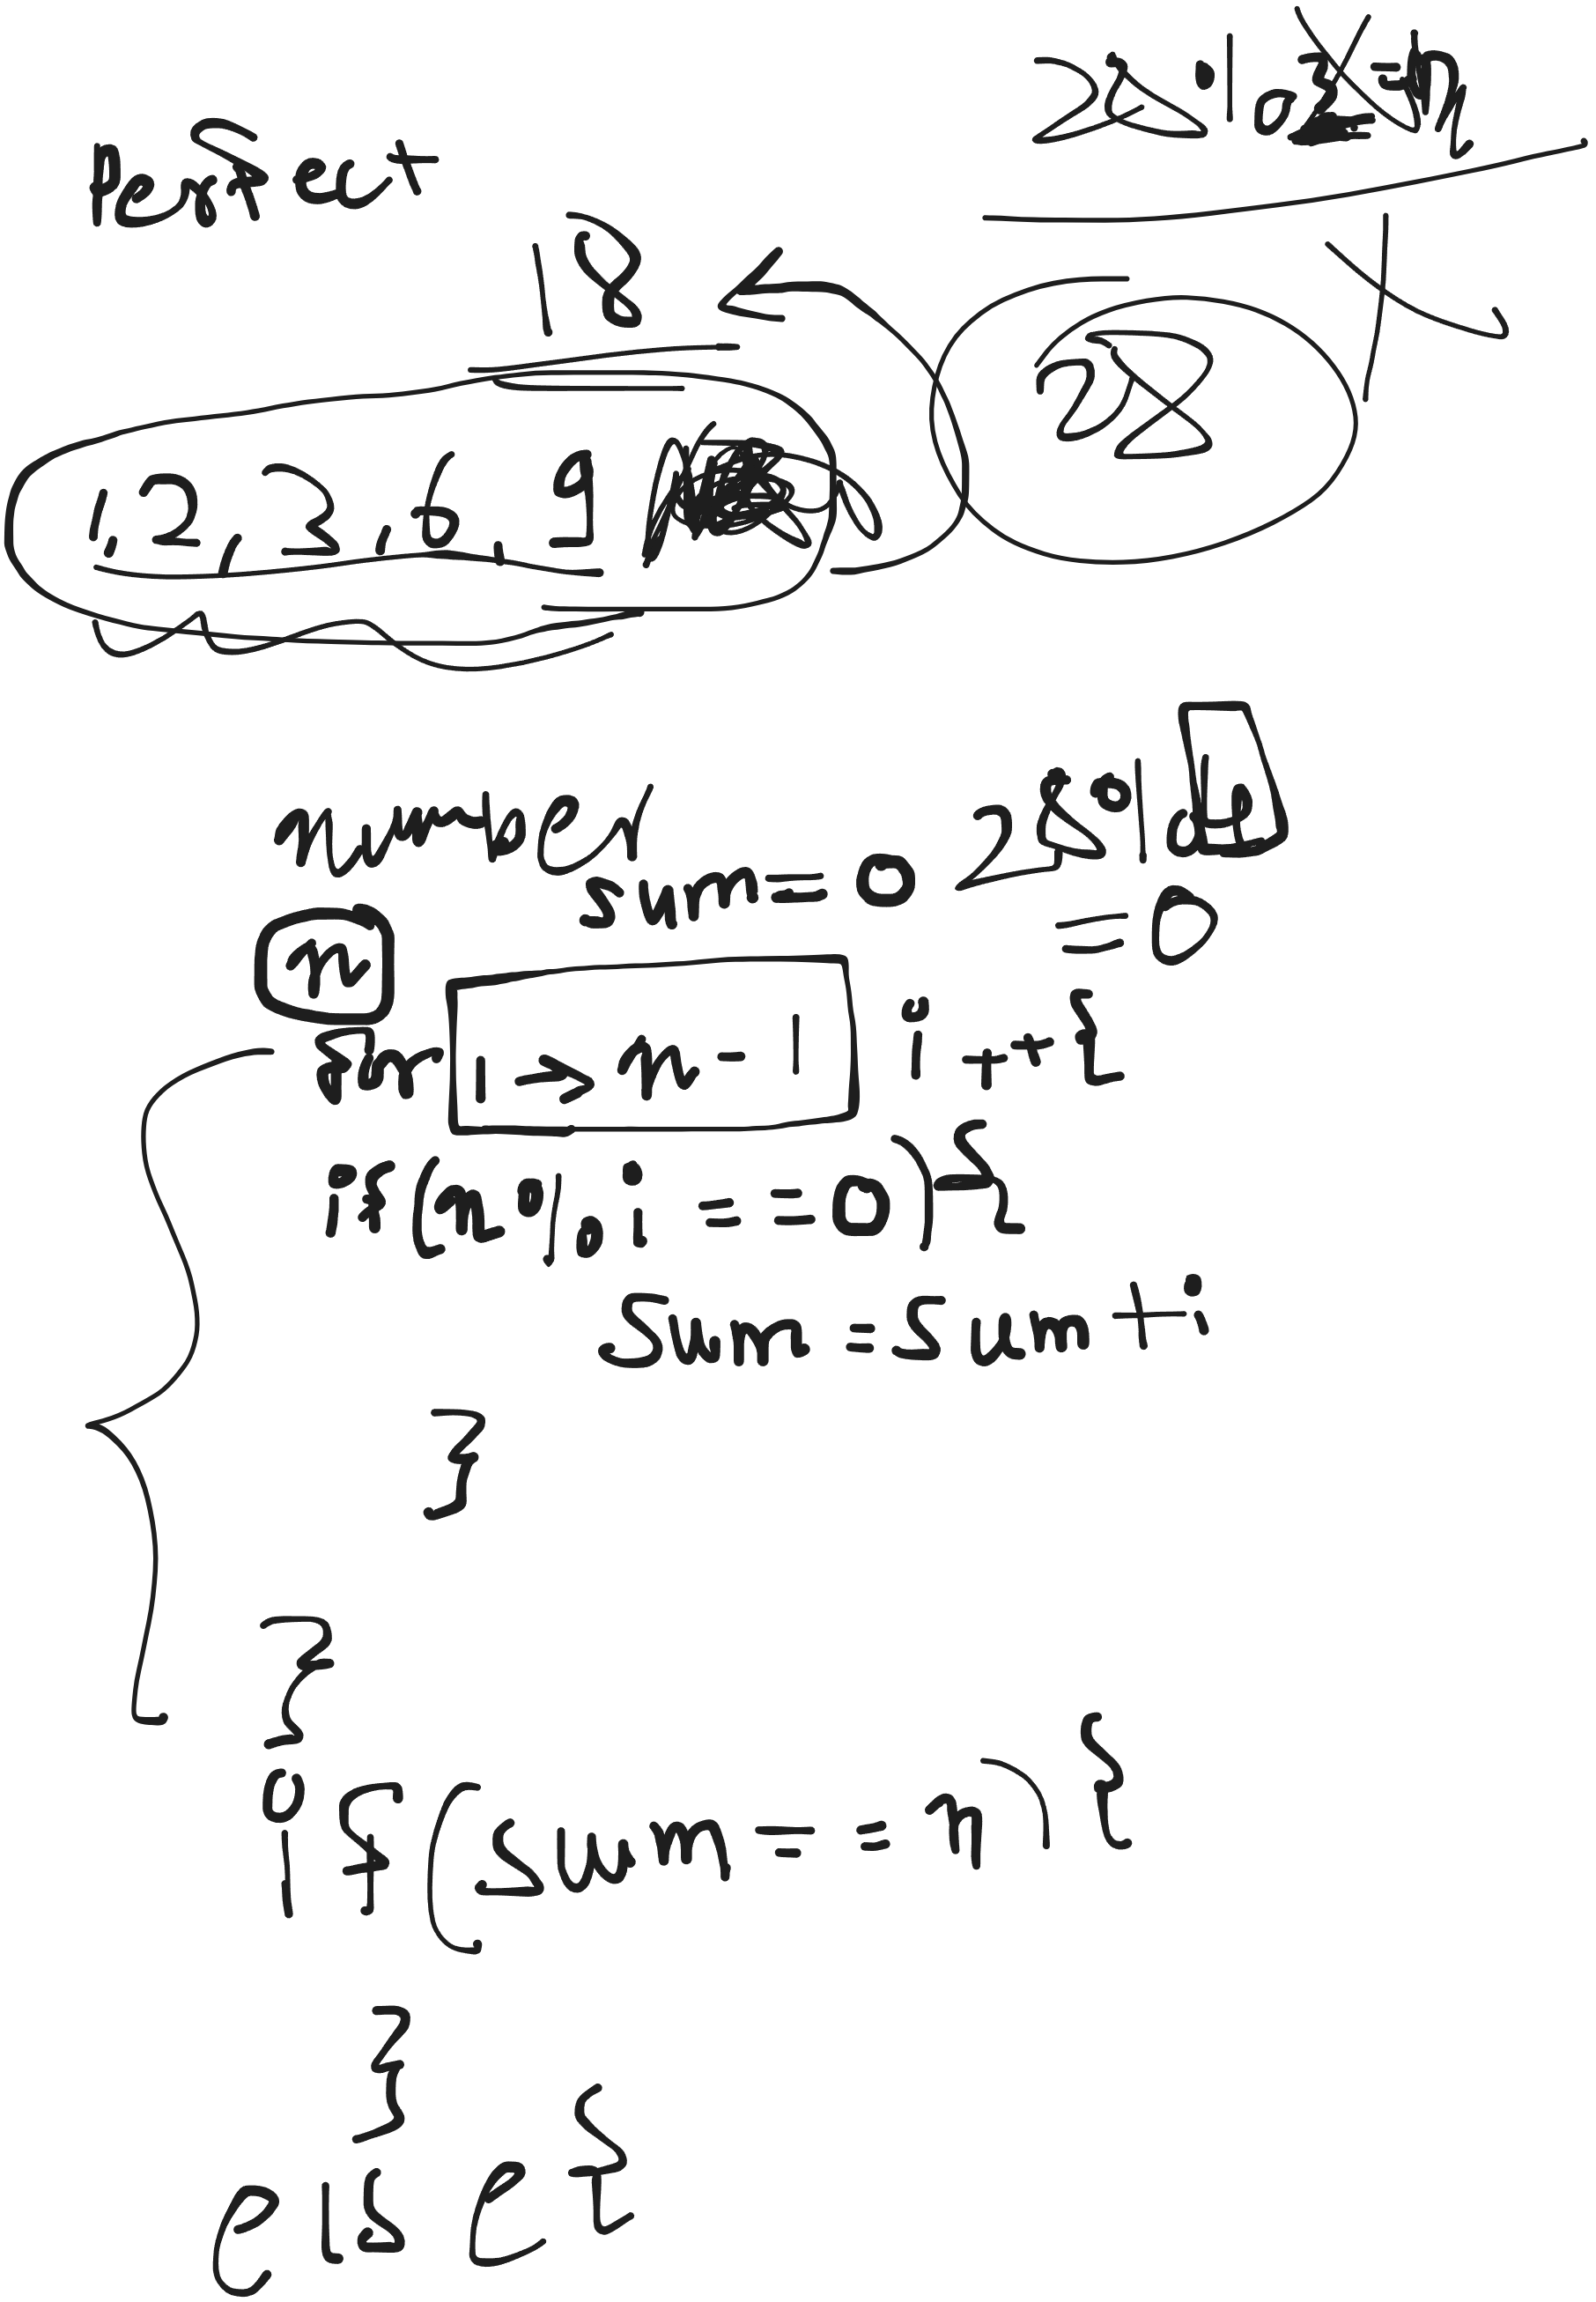 perfect
18
28
1,2,3,6,9
number
sum = 0
28%
= 0
n
for 1 → n - 1 i++{
if(n%i == 0){
sum = sum + i
}
}
if(sum == n){
}
else{